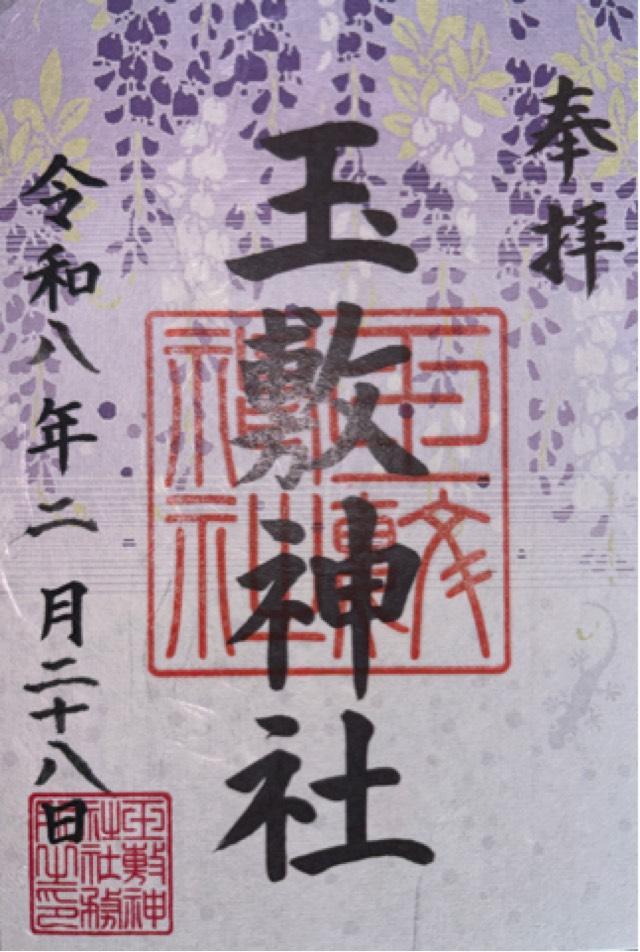 奉拝
玉敷神社
玉敷神社
令和八年二月二十八日
玉敷神
社社務
所之印